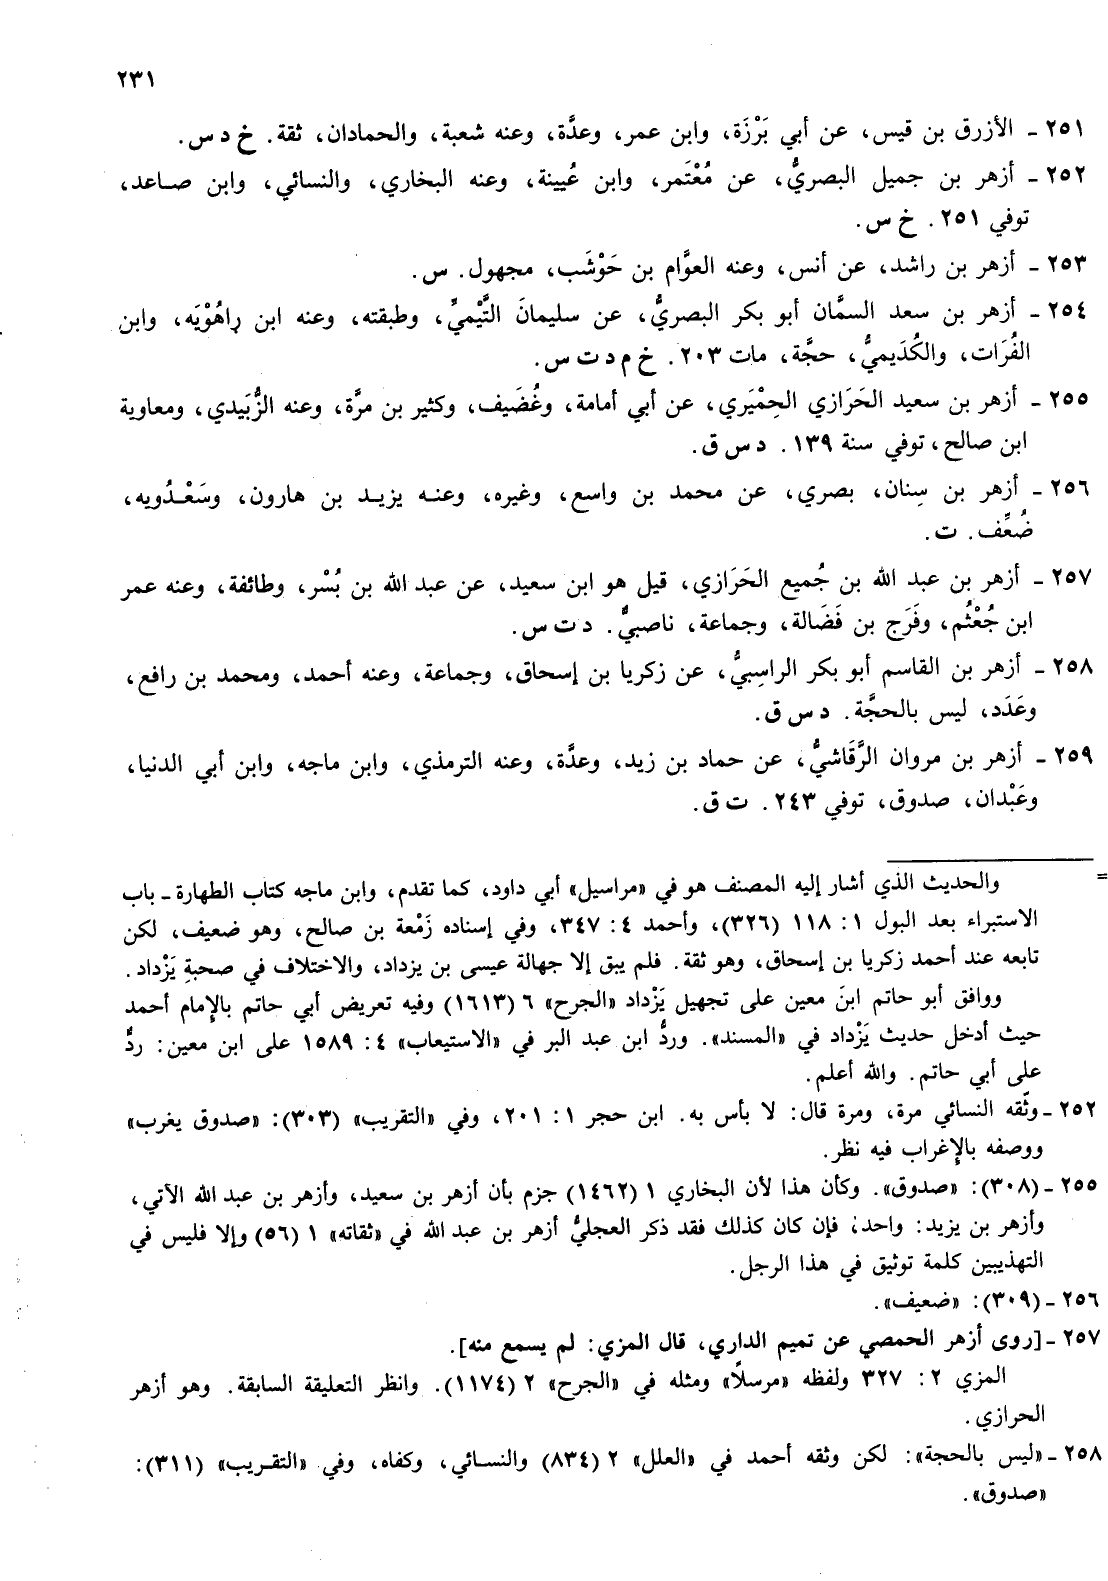 ٢٣١
٢٥١ - الأزرق بن قيس، عن أبي بَرْزَة، وابن عمر، وعدَّة، وعنه شعبة، والحمادان، ثقة. خ د س.
٢٥٢ - أزهر بن جميل البصريُّ، عن مُعْتَمر، وابن عُيينة، وعنه البخاري، والنسائي، وابن صاعد،
توفي ٢٥١. خ س.
٢٥٣ - أزهر بن راشد، عن أنس، وعنه العوَّام بن حَوْشَب، مجهول. س.
٢٥٤ - أزهر بن سعد السمَّان أبو بكر البصريُّ، عن سليمانَ التَّيْميِّ، وطبقته، وعنه ابن راهُوْيَه، وابن
الفُرَات، والكُدَيميُّ، حجَّة، مات ٢٠٣. خ م د ت س.
٢٥٥ - أزهر بن سعيد الحَرَازي الحِمْيَري، عن أبي أمامة، وغُضَيف، وكثير بن مرَّة، وعنه الزُّبَيدي، ومعاوية
ابن صالح، توفي سنة ١٣٩. د س ق.
٢٥٦ - أزهر بن سِنان، بصري، عن محمد بن واسع، وغيره، وعنه يزيد بن هارون، وسَعْدُويه،
ضُعِّف. ت.
٢٥٧ - أزهر بن عبد الله بن جُميع الحَرَازي، قيل هو ابن سعيد، عن عبد الله بن بُسْر، وطائفة، وعنه عمر
ابن جُعْثُم، وفَرَج بن فَضَالة، وجماعة، ناصبيٌّ. د ت س.
٢٥٨ - أزهر بن القاسم أبو بكر الراسِبيُّ، عن زكريا بن إسحاق، وجماعة، وعنه أحمد، ومحمد بن رافع،
وعَدَد، ليس بالحجَّة. د س ق.
٢٥٩ - أزهر بن مروان الرَّقَاشيُّ، عن حماد بن زيد، وعدَّة، وعنه الترمذي، وابن ماجه، وابن أبي الدنيا،
وعَبْدان، صدوق، توفي ٢٤٣. ت ق.
= والحديث الذي أشار إليه المصنف هو في «مراسيل» أبي داود، كما تقدم، وابن ماجه كتاب الطهارة - باب
الاستبراء بعد البول ١: ١١٨ (٣٢٦)، وأحمد ٤: ٣٤٧، وفي إسناده زَمْعة بن صالح، وهو ضعيف، لكن
تابعه عند أحمد زكريا بن إسحاق، وهو ثقة. فلم يبق إلا جهالة عيسى بن يزداد، والاختلاف في صحبةِ يَزْداد.
ووافق أبو حاتم ابنَ معين على تجهيل يَزْداد «الجرح» ٦ (١٦١٣) وفيه تعريض أبي حاتم بالإمام أحمد
حيث أدخل حديث يَزْداد في «المسند». وردُّ ابن عبد البر في «الاستيعاب» ٤: ١٥٨٩ على ابن معين: ردٌّ
على أبي حاتم. والله أعلم.
٢٥٢ - وثَّقه النسائي مرة، ومرة قال: لا بأس به. ابن حجر ١: ٢٠١، وفي «التقريب» (٣٠٣): «صدوق يغرب»
ووصفه بالإغراب فيه نظر.
٢٥٥ - (٣٠٨): «صدوق». وكأن هذا لأن البخاري ١ (١٤٦٢) جزم بأن أزهر بن سعيد، وأزهر بن عبد الله الآتي،
وأزهر بن يزيد: واحد، فإن كان كذلك فقد ذكر العجليُّ أزهر بن عبد الله في «ثقاته» ١ (٥٦) وإلا فليس في
التهذيبين كلمة توثيق في هذا الرجل.
٢٥٦ - (٣٠٩): «ضعيف».
٢٥٧ - [روى أزهر الحمصي عن تميم الداري، قال المزي: لم يسمع منه].
المزي ٢: ٣٢٧ ولفظه «مرسلًا» ومثله في «الجرح» ٢ (١١٧٤). وانظر التعليقة السابقة. وهو أزهر
الحرازي.
٢٥٨ - «ليس بالحجة»: لكن وثقه أحمد في «العلل» ٢ (٨٣٤) والنسائي، وكفاه، وفي «التقريب» (٣١١):
«صدوق».